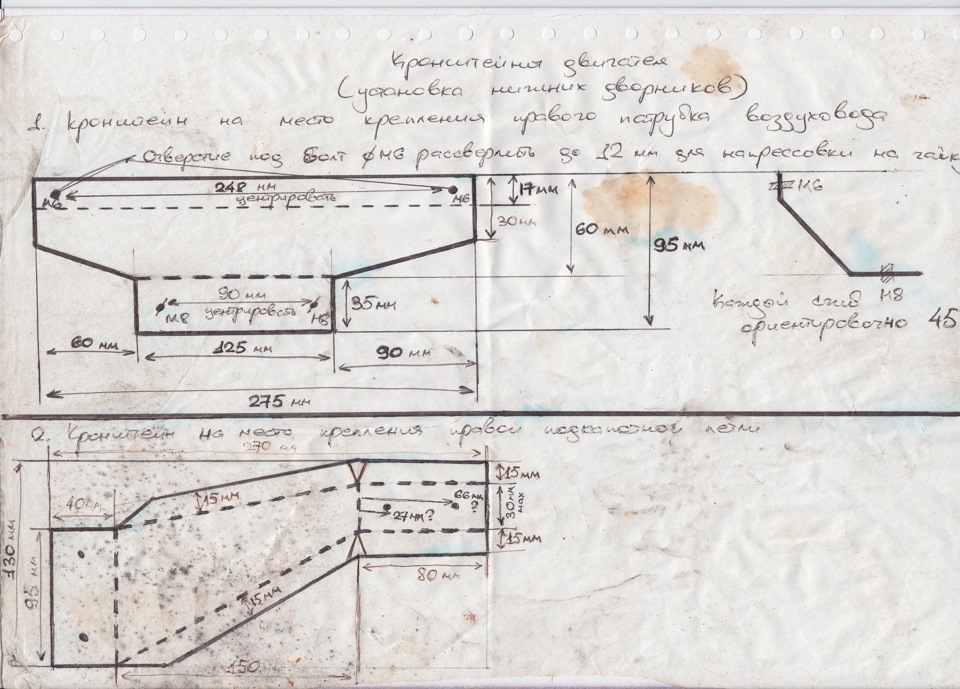 Кронштейны двигателя
(установка нижних дворников)
1. Кронштейн на место крепления правого патрубка воздуховода
Отверстие под Болт ф М6 рассверлить до 12 мм для напрессовки на гайк
248 мм
центрировать
М6
М6
17мм
30мм
60 мм
95 мм
М6
М8
90 мм
центрировать
М8
М8
35мм
Каждый сгиб
ориентировочно 45
60 мм
125 мм
90 мм
275 мм
2. Кронштейн на место крепления правой подкапотной петли
270 мм
15мм
40мм
15мм
66мм
?
27мм?
30мм
мах
15мм
130 мм
95 мм
15мм
80мм
150